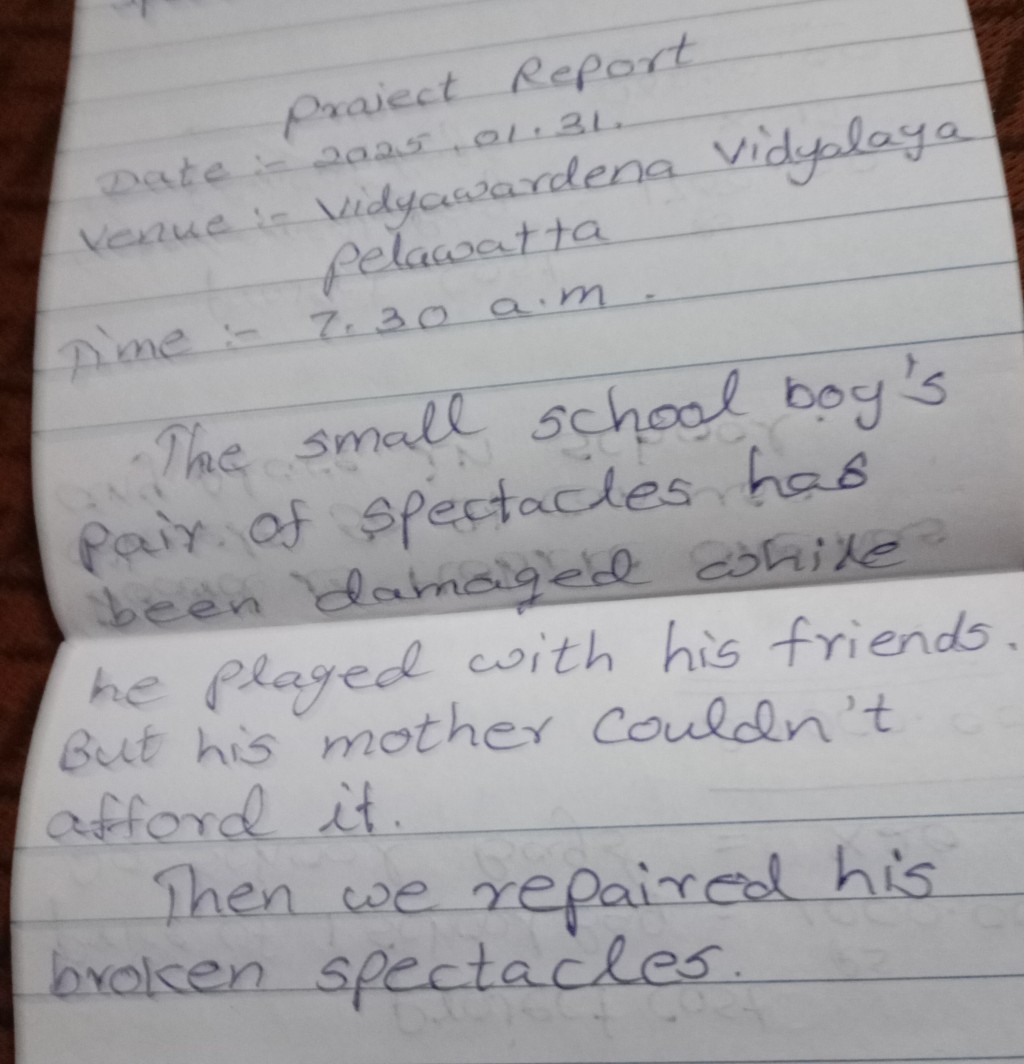 Praject Report
Date :- 2025.01.31.
Venue :- Vidyawardena Vidyalaya
Pelawatta
Time :- 7.30 a.m.
The small school boy's
pair of spectacles has
been damaged while
he played with his friends.
But his mother couldn't
afford it.
Then we repaired his
broken spectacles.